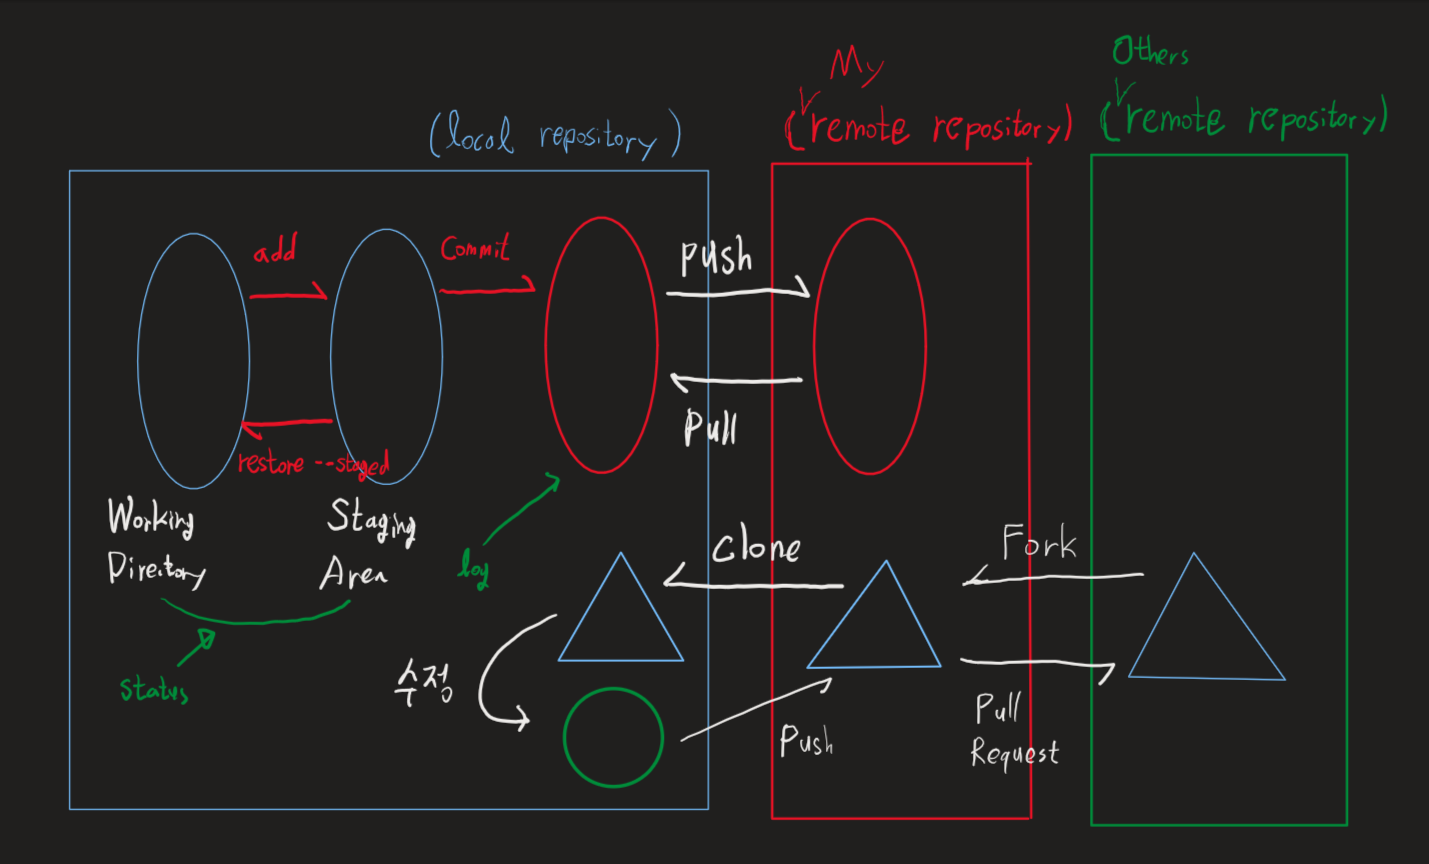 My
Others
(local repository)
(remote repository)
(remote repository)
add
Commit
push
Pull
restore --staged
Working
Directory
Staging
Area
log
status
Clone
Fork
수정
Push
Pull
Request